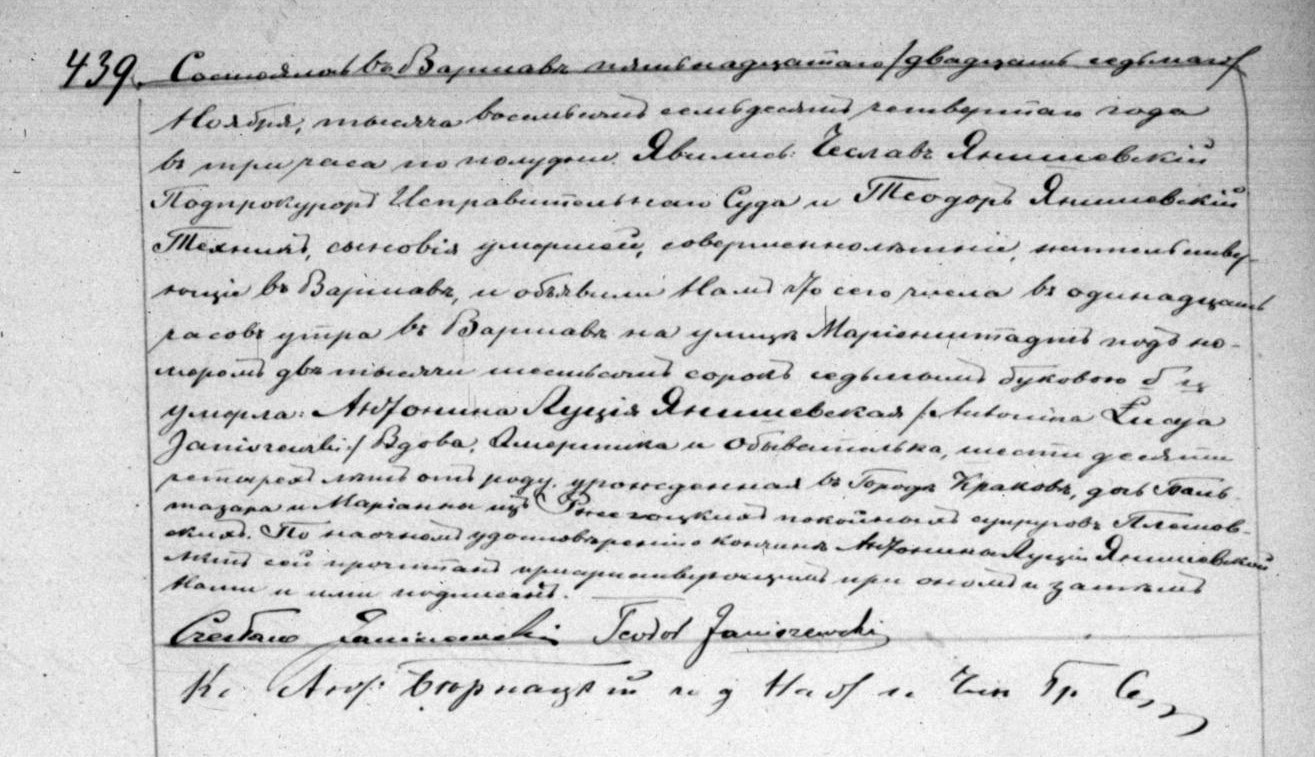 439. Состоялось въ Варшавѣ пятьнадцатаго /двадцать седьмаго/
Ноября, тысяча восемьсотъ семьдесятъ четвертаго года
въ три часа по полудни. Явились: Чеславъ Янишевскій
Подпрокуроръ Исправительнаго Суда и Теодоръ Янишевскій
Техникъ, сыновія умершей, совершеннолѣтніе, жительству-
ющіе въ Варшавѣ, и объявили Намъ что сего числа въ одинадцать
часовъ утра въ Варшавѣ на улицѣ Маріенштадтъ подъ но-
меромъ двѣ тысячи шестьсотъ сорокъ седьмымъ буковою б ц
умерла: Антонина Луція Янишевская /: Antonina Łucya
Janiszewski :/ Вдова, и Обывателька, шести десяти
четырехъ лѣтъ отъ роду, урожденная въ Городѣ Краковѣ, дочь Баль-
тазара и Маріанны изъ покойныхъ супруговъ
По наочномъ удостовѣреніи о кончинѣ Антонины Луціи Янишевской
Актъ сей прочитанъ присутствующимъ при ономъ и затѣмъ
Нами и ими подписанъ.
Czesław Janiszewski Teodor Janiszewski
Кс. Ант.